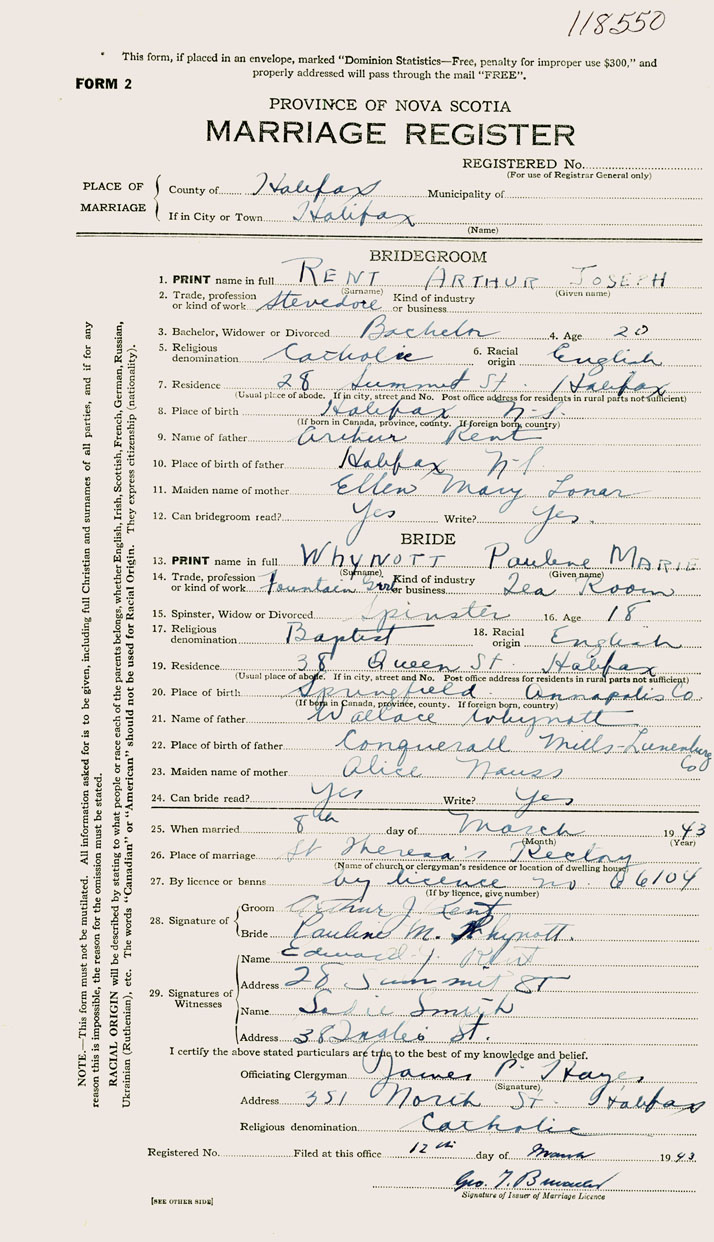 118550
This form, if placed in an envelope, marked "Dominion Statistics—Free, penalty for improper use $300," and
properly addressed will pass through the mail "FREE".
FORM 2
PROVINCE OF NOVA SCOTIA
MARRIAGE REGISTER
REGISTERED No.
(For use of Registrar General only)
PLACE OF MARRIAGE
County of Halifax Municipality of
If in City or Town Halifax
(Name)
BRIDEGROOM
1. PRINT name in full RENT ARTHUR JOSEPH
(Surname) (Given name)
2. Trade, profession or kind of work Stevedore Kind of industry or business
3. Bachelor, Widower or Divorced Bachelor 4. Age 20
5. Religious denomination Catholic 6. Racial origin English
7. Residence 28 Summit St. Halifax
(Usual place of abode. If in city, street and No. Post office address for residents in rural parts not sufficient)
8. Place of birth Halifax N.S.
(If born in Canada, province, county. If foreign born, country)
9. Name of father Arthur Rent
10. Place of birth of father Halifax N-S
11. Maiden name of mother Ellen Mary Lonar
12. Can bridegroom read? Yes Write? Yes.
BRIDE
13. PRINT name in full WHYNOTT Pauline MARIE
(Surname) (Given name)
14. Trade, profession or kind of work Fountain Girl Kind of industry or business Tea Room
15. Spinster, Widow or Divorced Spinster 16. Age 18
17. Religious denomination Baptist 18. Racial origin English
19. Residence 38 Queen St. Halifax
(Usual place of abode. If in city, street and No. Post office address for residents in rural parts not sufficient)
20. Place of birth Springfield Annapolis Co.
(If born in Canada, province, county. If foreign born, country)
21. Name of father Wallace Whynott
22. Place of birth of father Conquerall Mills-Lunenburg Co
23. Maiden name of mother Alice Nauss
24. Can bride read? Yes Write? Yes
25. When married 8th day of March 1943
(Month) (Year)
26. Place of marriage St Theresa's Rectory
(Name of church or clergyman's residence or location of dwelling house)
27. By licence or banns by licence no. 6104
(If by licence, give number)
28. Signature of
Groom Arthur J. Rent
Bride Pauline M. Whynott.
29. Signatures of Witnesses
Name Edward J. Rent
Address 28 Summit ST
Name Sadie Smith
Address 38 Inglis St.
I certify the above stated particulars are true to the best of my knowledge and belief.
Officiating Clergyman James P. Hayes
(Signature)
Address 351 North St. Halifax
Religious denomination Catholic
Registered No. Filed at this office 12th day of March 1943
Geo. T.
Signature of Issuer of Marriage Licence
[SEE OTHER SIDE]
NOTE.—This form must not be mutilated. All information asked for is to be given, including full Christian and surnames of all parties, and if for any
reason this is impossible, the reason for the omission must be stated.
RACIAL ORIGIN will be described by stating to what people or race each of the parents belongs, whether English, Irish, Scottish, French, German, Russian,
Ukrainian (Ruthenian), etc. The words "Canadian" or "American" should not be used for Racial Origin. They express citizenship (nationality).